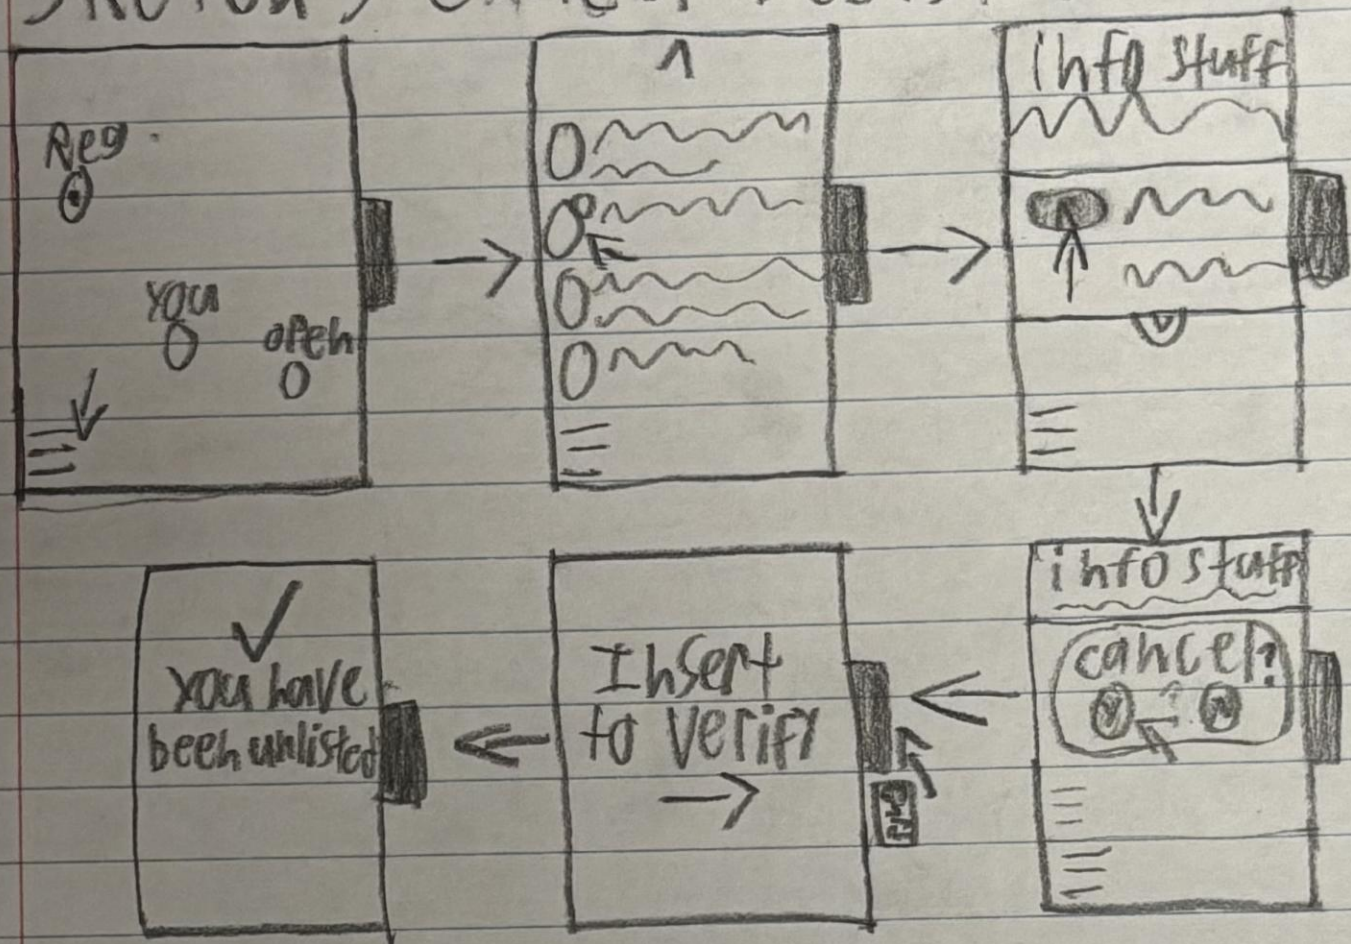 Reg.
You
open
info stuff
info stuff
cancel?
Y ? N
Insert
to verify
You have
been unlisted